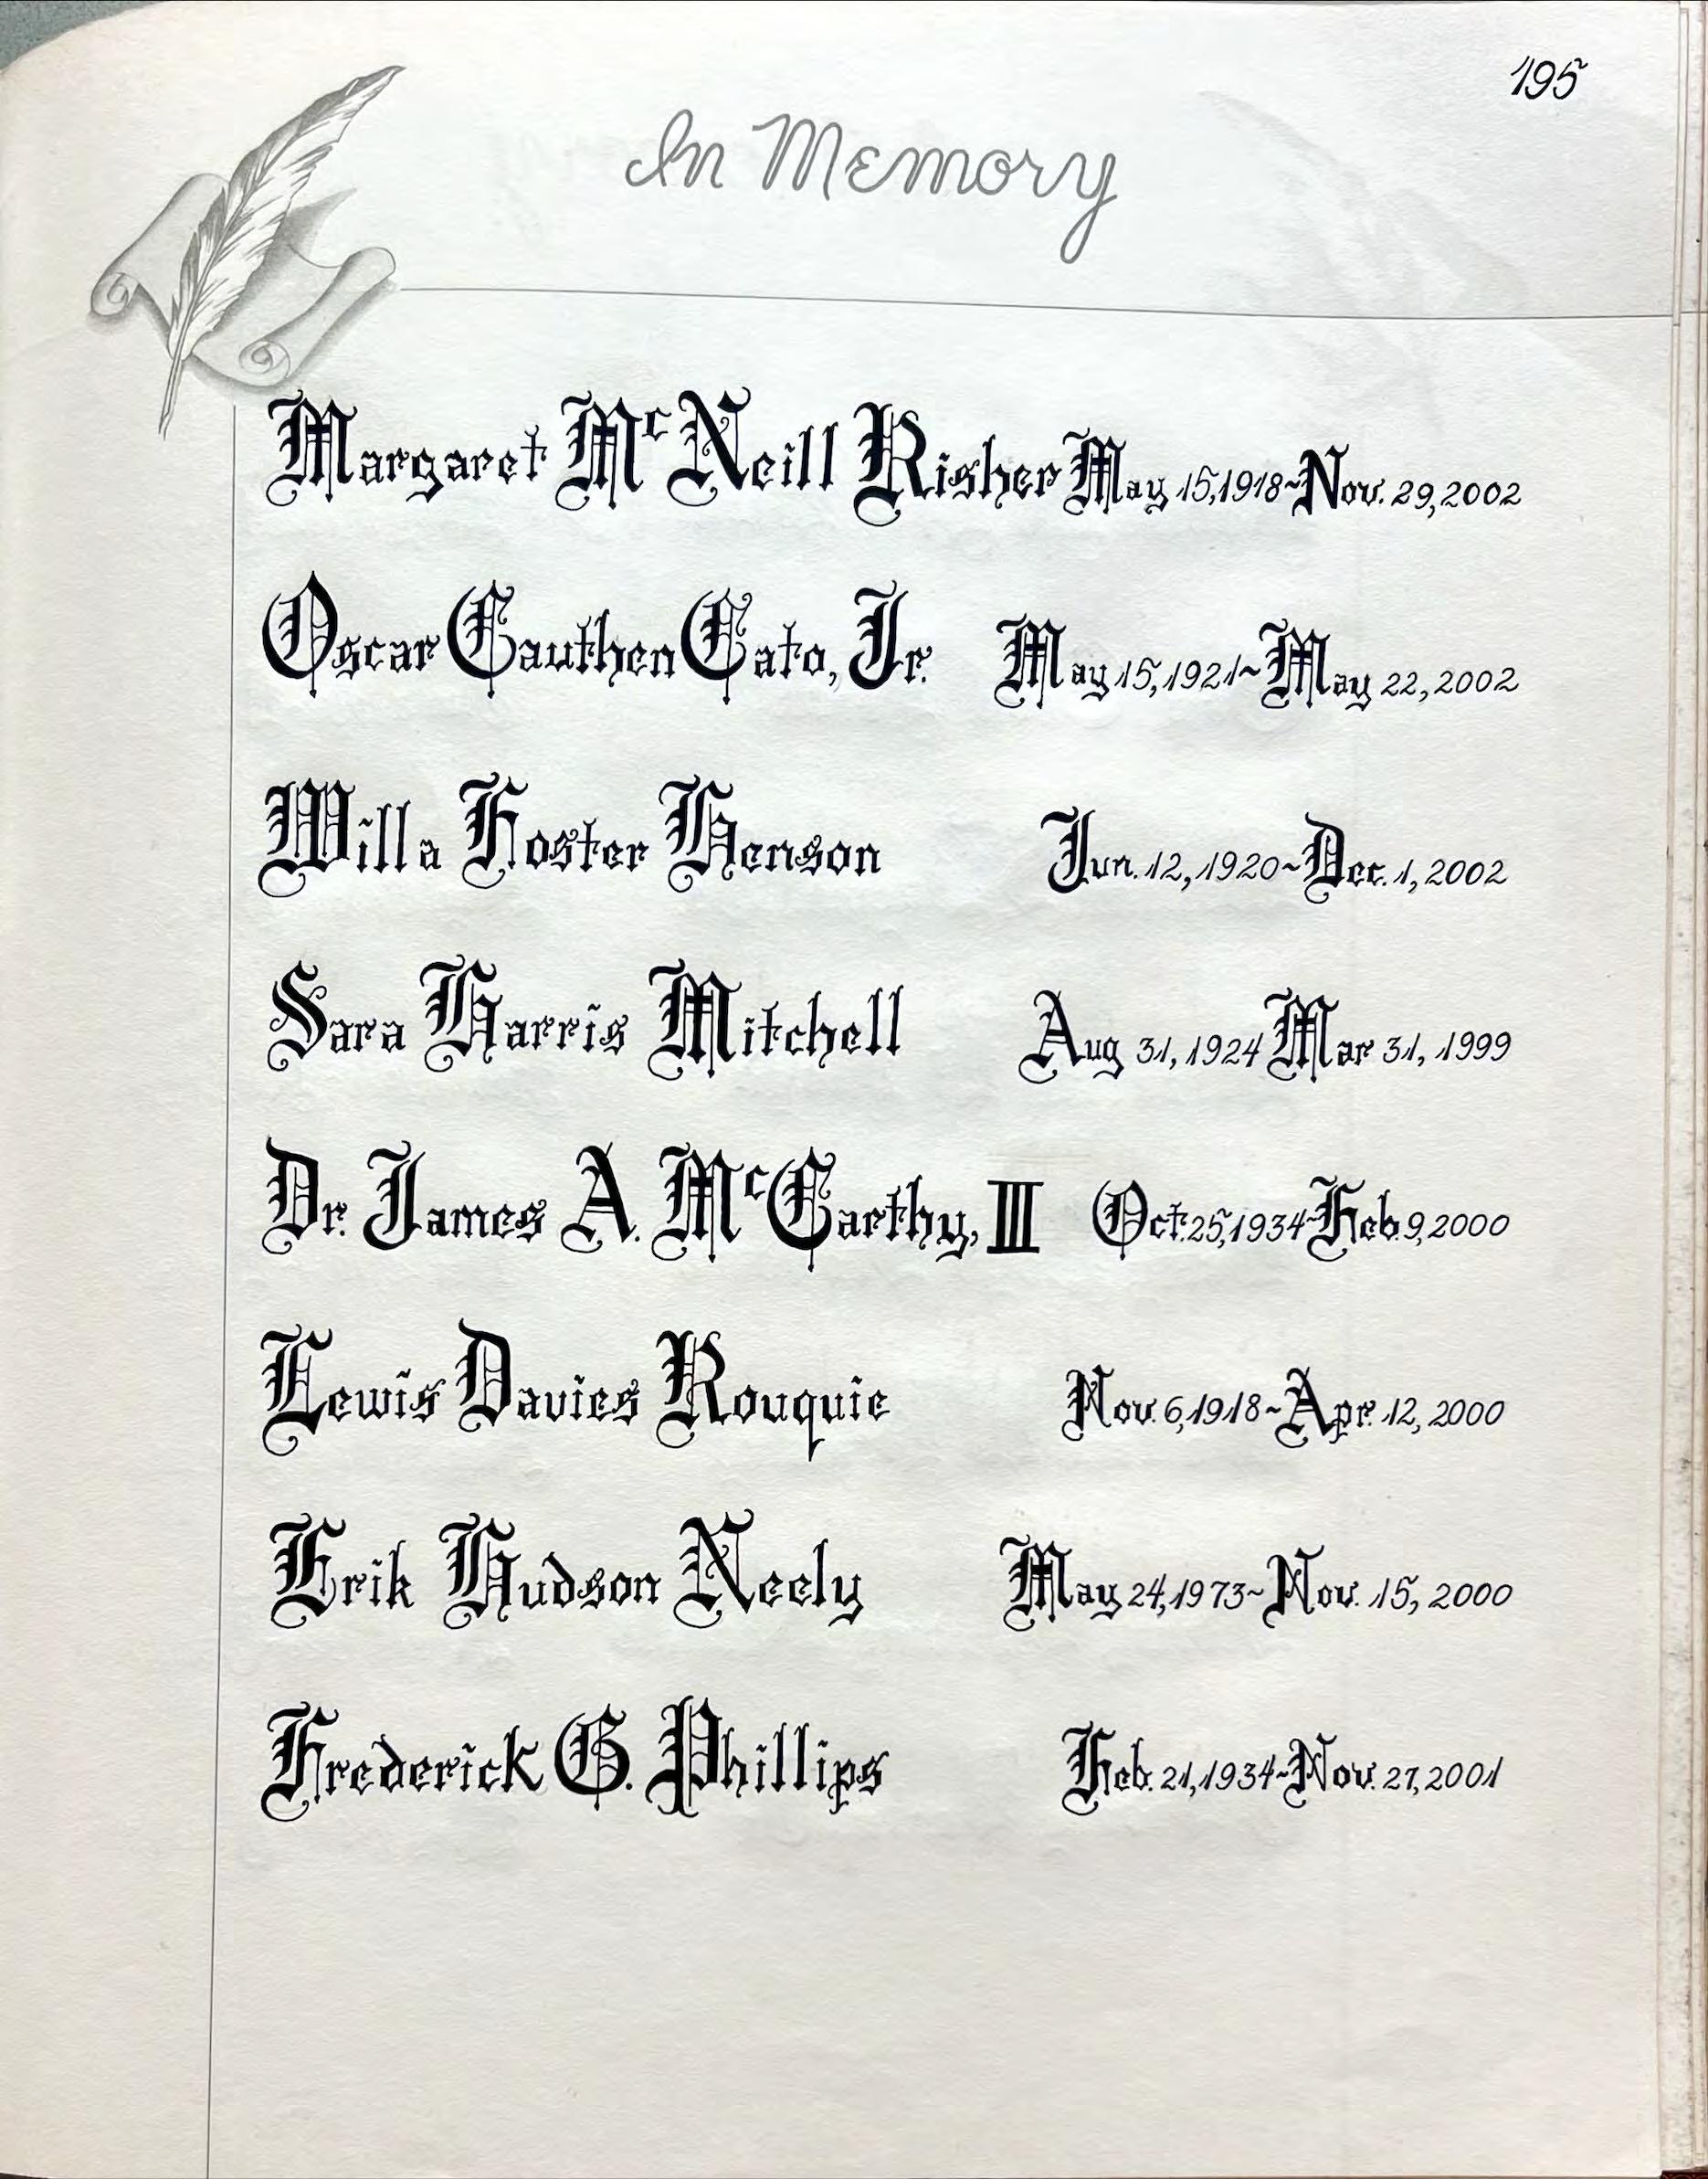 195
In Memory
Margaret McNeill Risher May 15, 1918~Nov. 29, 2002
Oscar Cauthen Cato, Jr. May 15, 1921~May 22, 2002
Willa Foster Henson Jun. 12, 1920~Dec. 1, 2002
Sara Harris Mitchell Aug 31, 1924 Mar 31, 1999
Dr. James A. McCarthy, III Oct. 25, 1934~Feb. 9, 2000
Lewis Davies Rouquie Nov. 6, 1918~Apr. 12, 2000
Erik Hudson Neely May 24, 1973~Nov. 15, 2000
Frederick G. Phillips Feb. 21, 1934~Nov. 27, 2001